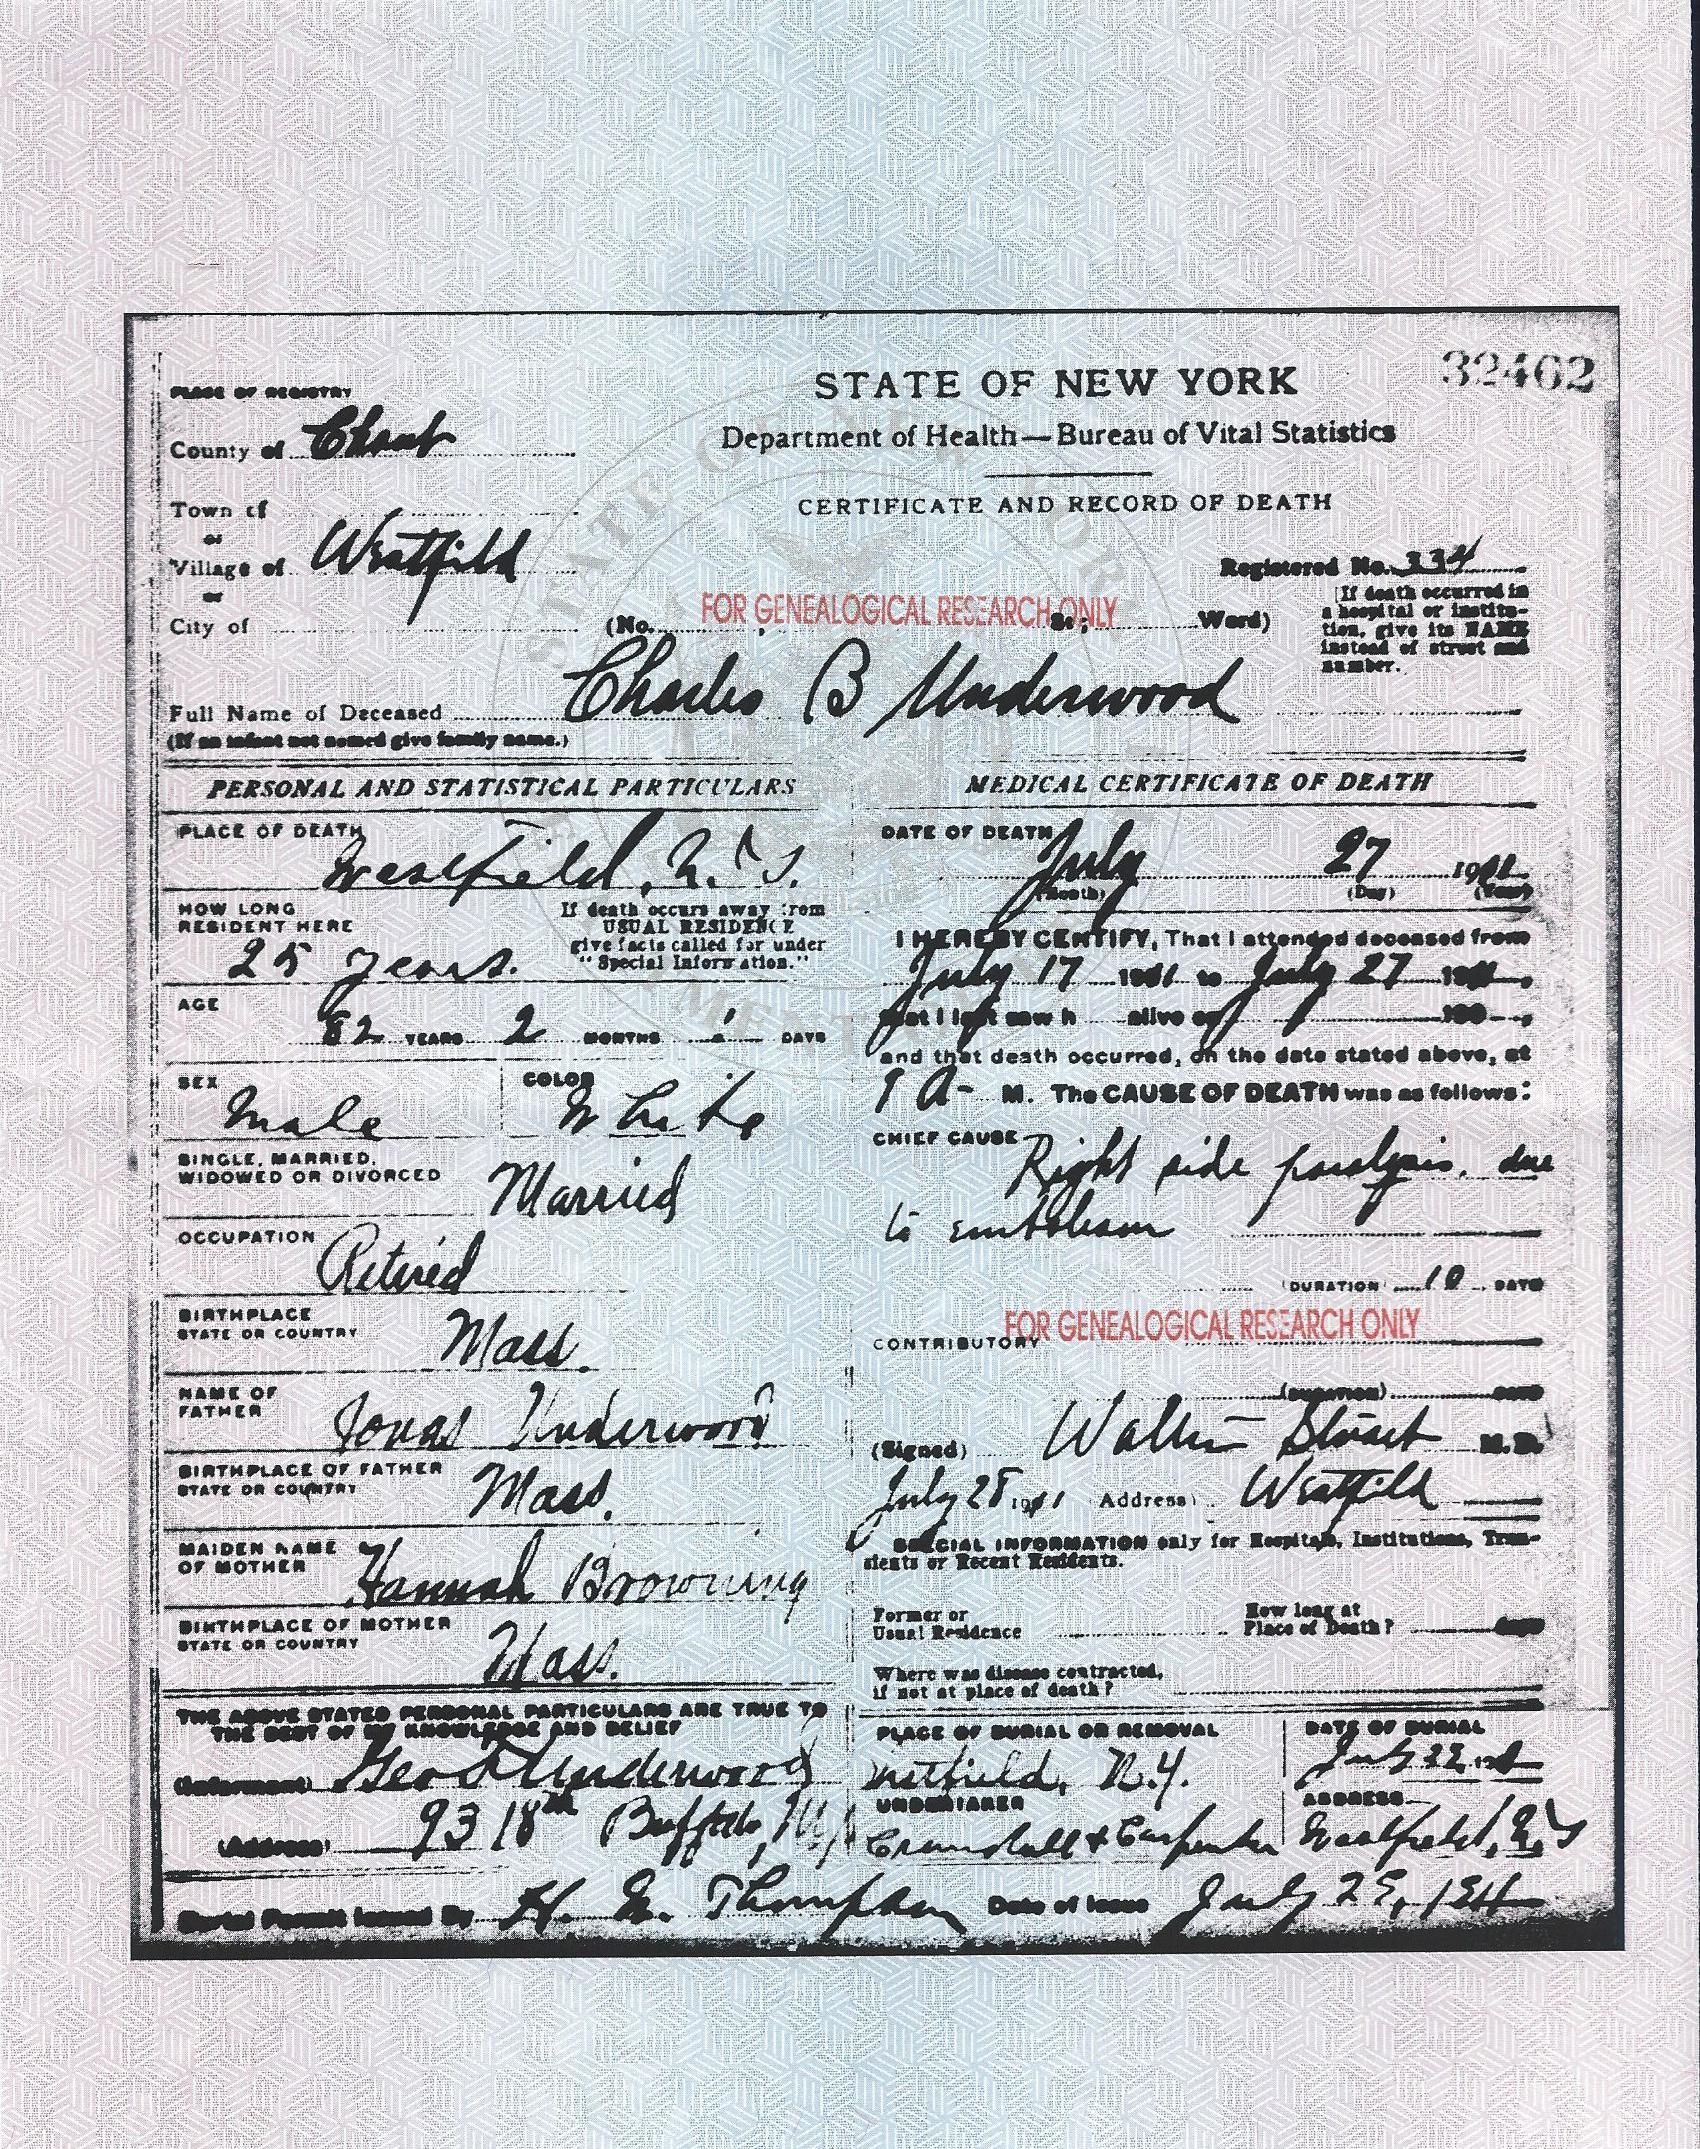 32462
STATE OF NEW YORK
Department of Health—Bureau of Vital Statistics
CERTIFICATE AND RECORD OF DEATH
PLACE OF REGISTRY
County of Chaut
Town of
or
Village of Westfield
or
City of
Registered No. 334
(No. , St.; Ward)
[If death occurred in
a hospital or institu-
tion, give its NAME
instead of street and
number.
FOR GENEALOGICAL RESEARCH ONLY
Full Name of Deceased Charles B Underwood
(If an infant not named give family name.)
PERSONAL AND STATISTICAL PARTICULARS
PLACE OF DEATH Westfield, N.Y.
HOW LONG
RESIDENT HERE
25 years.
If death occurs away from
USUAL RESIDENCE
give facts called for under
"Special Information."
AGE
82 YEARS 2 MONTHS 1 DAYS
SEX Male
COLOR White
SINGLE, MARRIED,
WIDOWED OR DIVORCED Married
OCCUPATION Retired
BIRTHPLACE
STATE OR COUNTRY Mass.
NAME OF
FATHER Jonas Underwood
BIRTHPLACE OF FATHER
STATE OR COUNTRY Mass.
MAIDEN NAME
OF MOTHER Hannah Browning
BIRTHPLACE OF MOTHER
STATE OR COUNTRY Mass.
THE ABOVE STATED PERSONAL PARTICULARS ARE TRUE TO
THE BEST OF MY KNOWLEDGE AND BELIEF
(Informant) Geo Underwood
(Address) 93 18th Buffalo, N.Y.
MEDICAL CERTIFICATE OF DEATH
DATE OF DEATH July 27 1911
(Month) (Day) (Year)
I HEREBY CERTIFY, That I attended deceased from
July 17 1911 to July 27 1911,
that I last saw h alive on 190 ,
and that death occurred, on the date stated above, at
9 A- M. The CAUSE OF DEATH was as follows:
CHIEF CAUSE Right side paralysis. due
to embolism
(DURATION) 10 DAYS
FOR GENEALOGICAL RESEARCH ONLY
CONTRIBUTORY
(DURATION) DAYS
(Signed) Walter Stuart M.D.
July 28 1911 (Address) Westfield
SPECIAL INFORMATION only for Hospitals, Institutions, Tran-
sients or Recent Residents.
Former or
Usual Residence
How long at
Place of Death? days
Where was disease contracted,
if not at place of death?
PLACE OF BURIAL OR REMOVAL
Westfield, N.Y.
DATE OF BURIAL
July
UNDERTAKER
Crandall & Carpenter
ADDRESS
Westfield, N.Y
Burial Permit Issued By H. Thompson Date of Issue July 1911
STATE OF NEW YORK